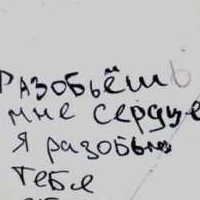 РАЗОБЬЁШЬ
мне сердце
я разобью
тебе